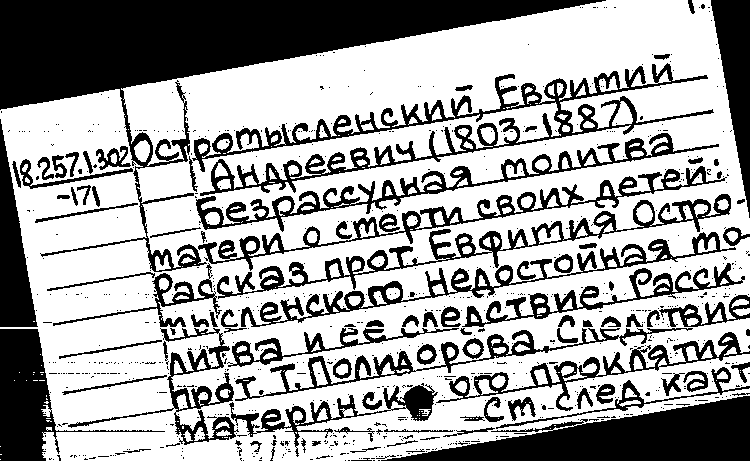 18.257.1.302
-171
Остромысленский, Евфитий
Андреевич (1803-1887).
Безрассудная молитва
матери о смерти своих детей:
Рассказ прот. Евфимия Остро-
мысленского. Недостойная мо-
литва и ее следствие: Расск.
прот. Т. Полидорова. Следствие
материнского проклятия:
См. след. карт